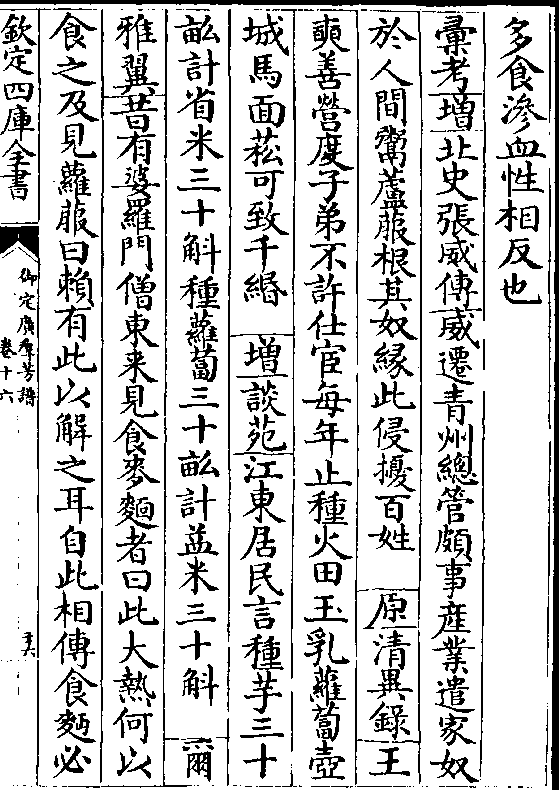 多食滲血性相反也
彚考增北史張威傳威遷青州總管頗事産業遣家奴
於人間鬻蘆菔根其奴緣此侵擾百姓 原清異錄王
奭善營度子弟不許仕宦每年止種火田玉乳蘿蔔壺
城馬面菘可致千緡 增談苑江東居民言種芋三十
畝計省米三十斛種蘿蔔三十畝計益米三十斛 爾
雅翼昔有婆羅門僧東来見食麥麵者曰此大熱何以
食之及見蘿菔曰賴有此以解之耳自此相傳食麵必
欽定四庫全書
御定廣羣芳譜
卷十六